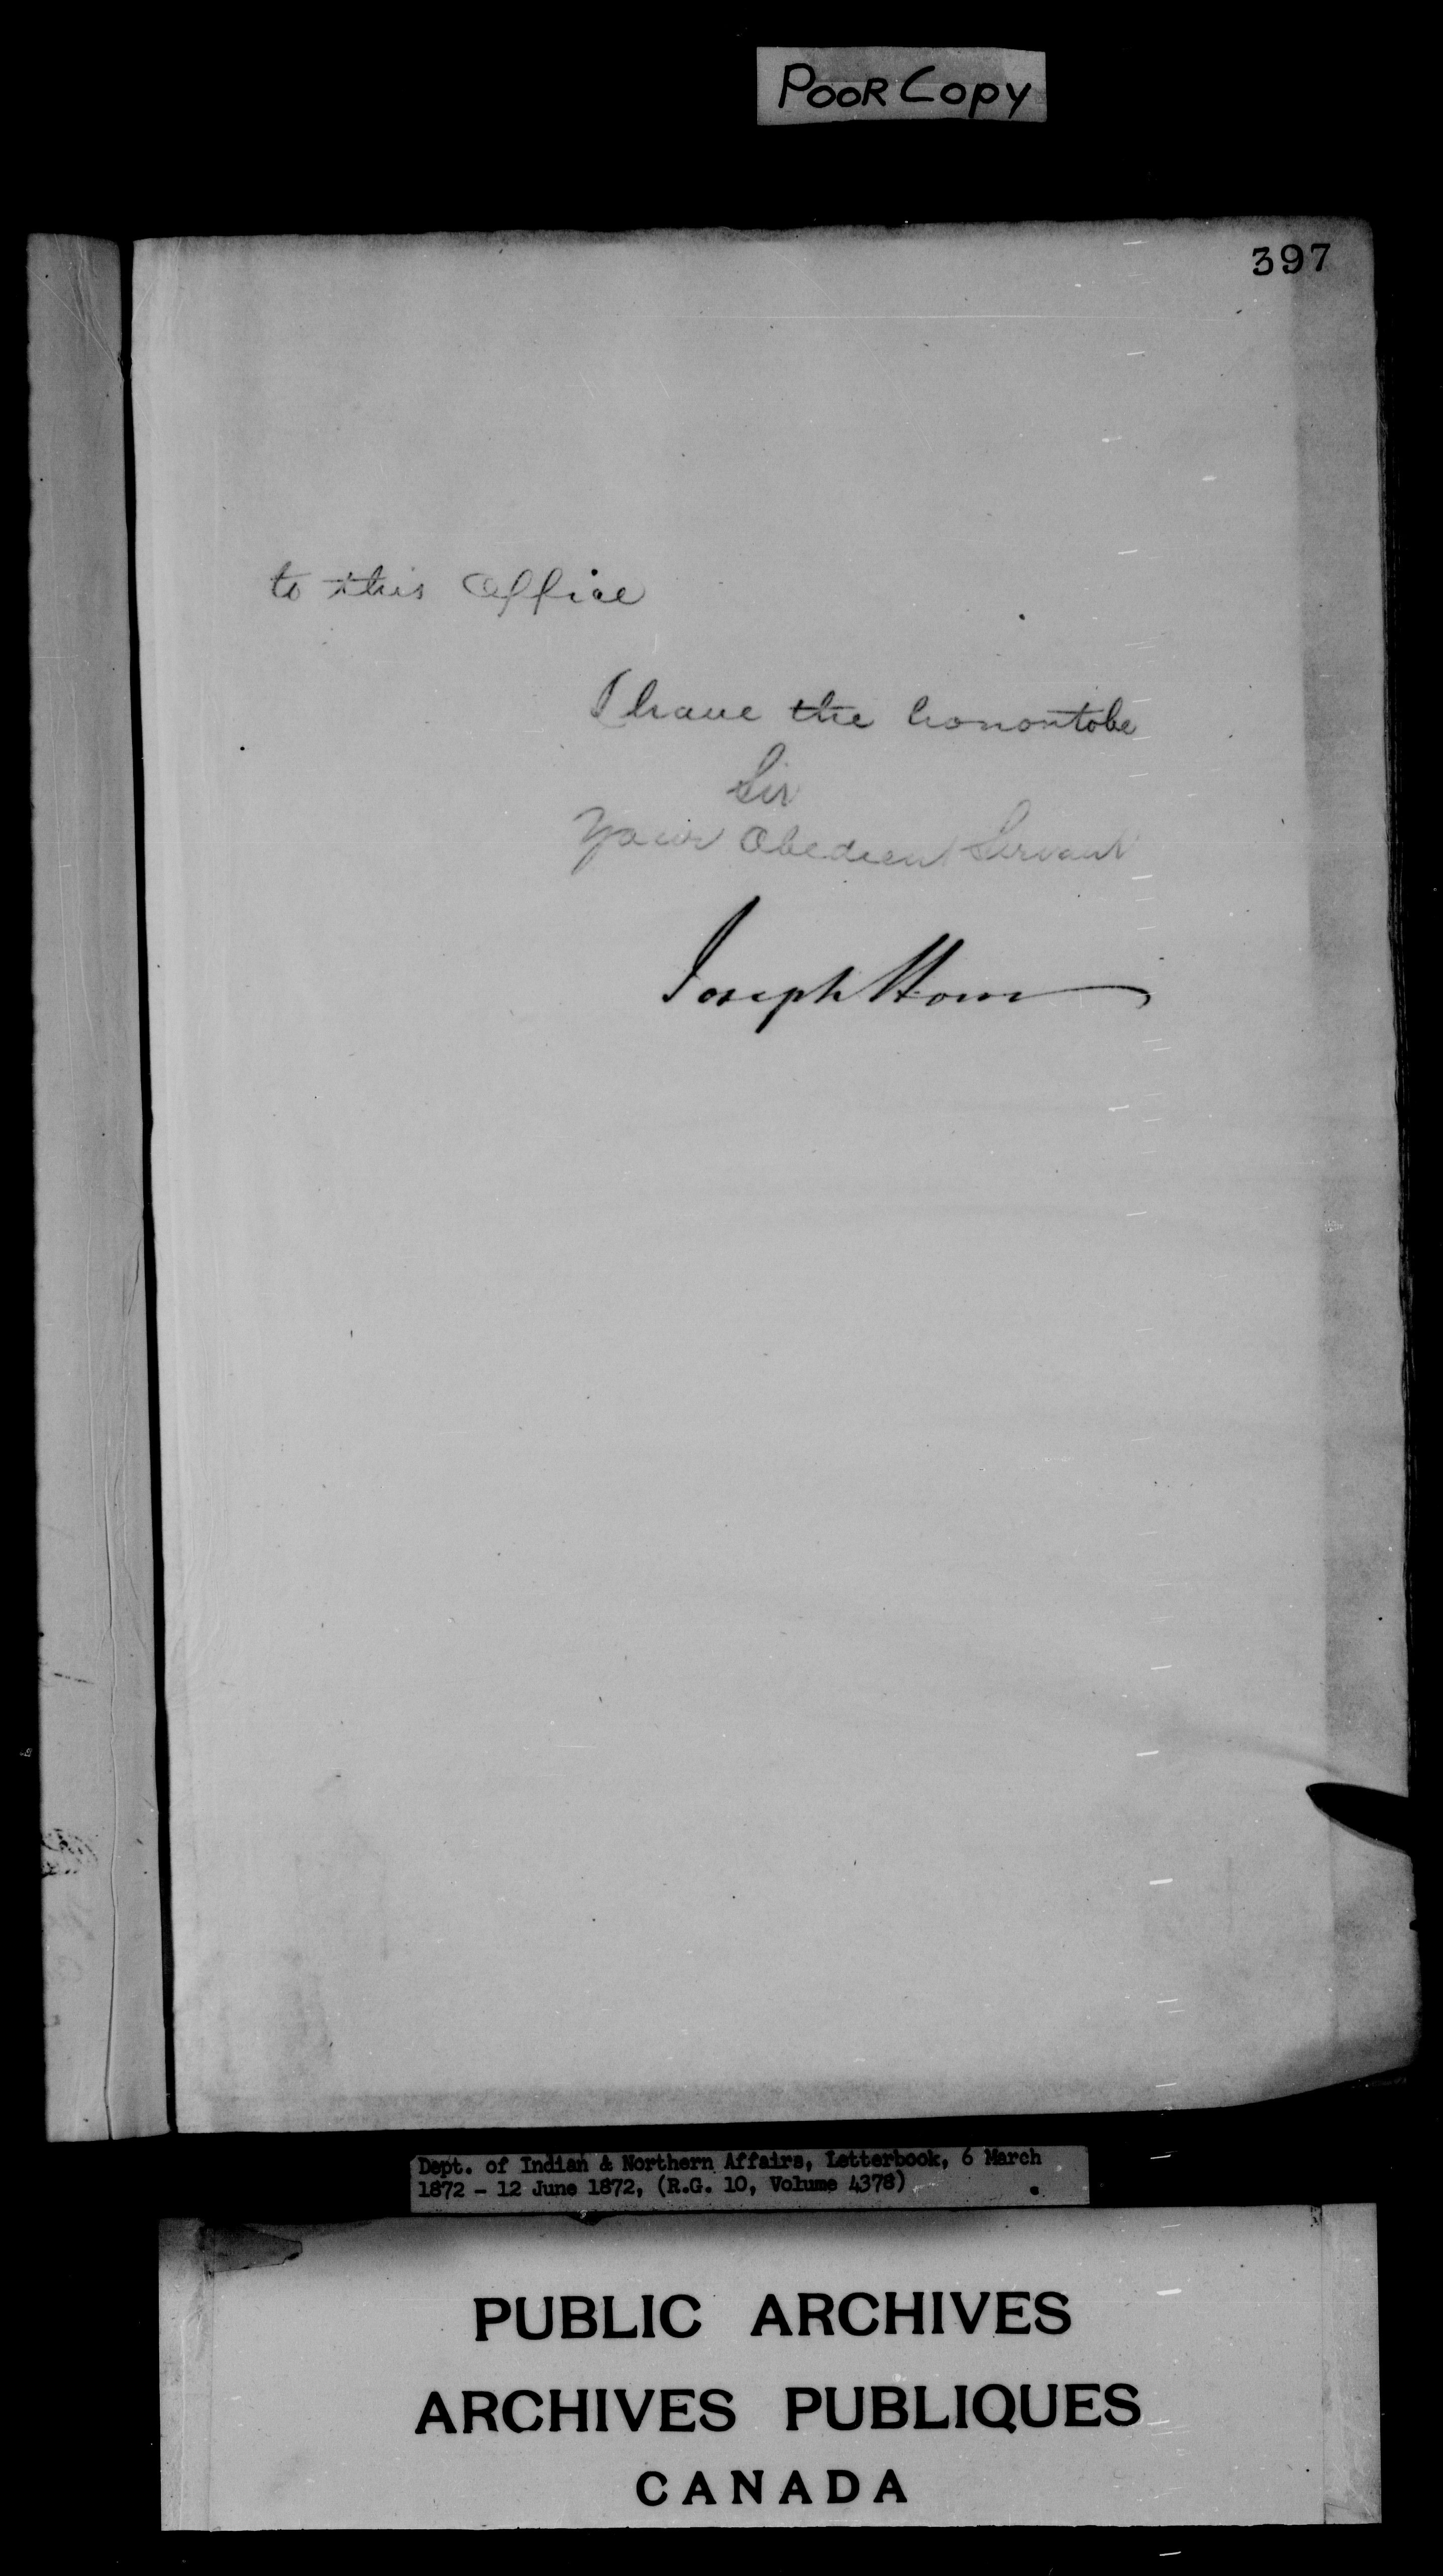 POOR COPY
397
to this Office
I have the honor to be
Sir
Your Obedient Servant
Joseph Howe
Dept. of Indian & Northern Affairs, Letterbook, 6 March
1872 - 12 June 1872, (R.G. 10, Volume 4378)
PUBLIC ARCHIVES
ARCHIVES PUBLIQUES
CANADA